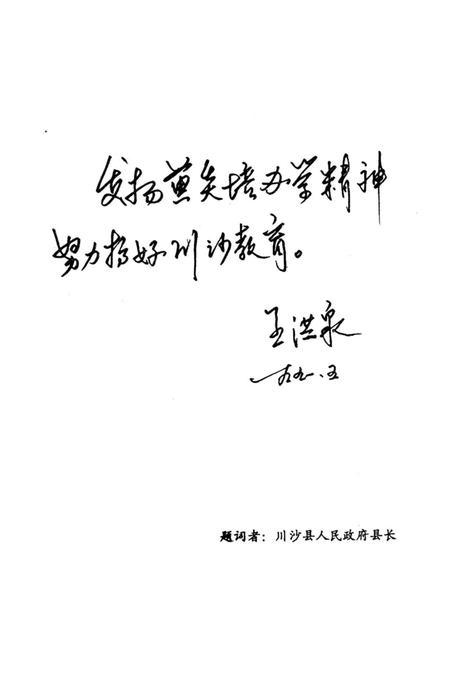 发扬黄炎培办学精神
努力搞好川沙教育。
王洪泉
一九九一.五
题词者：川沙县人民政府县长